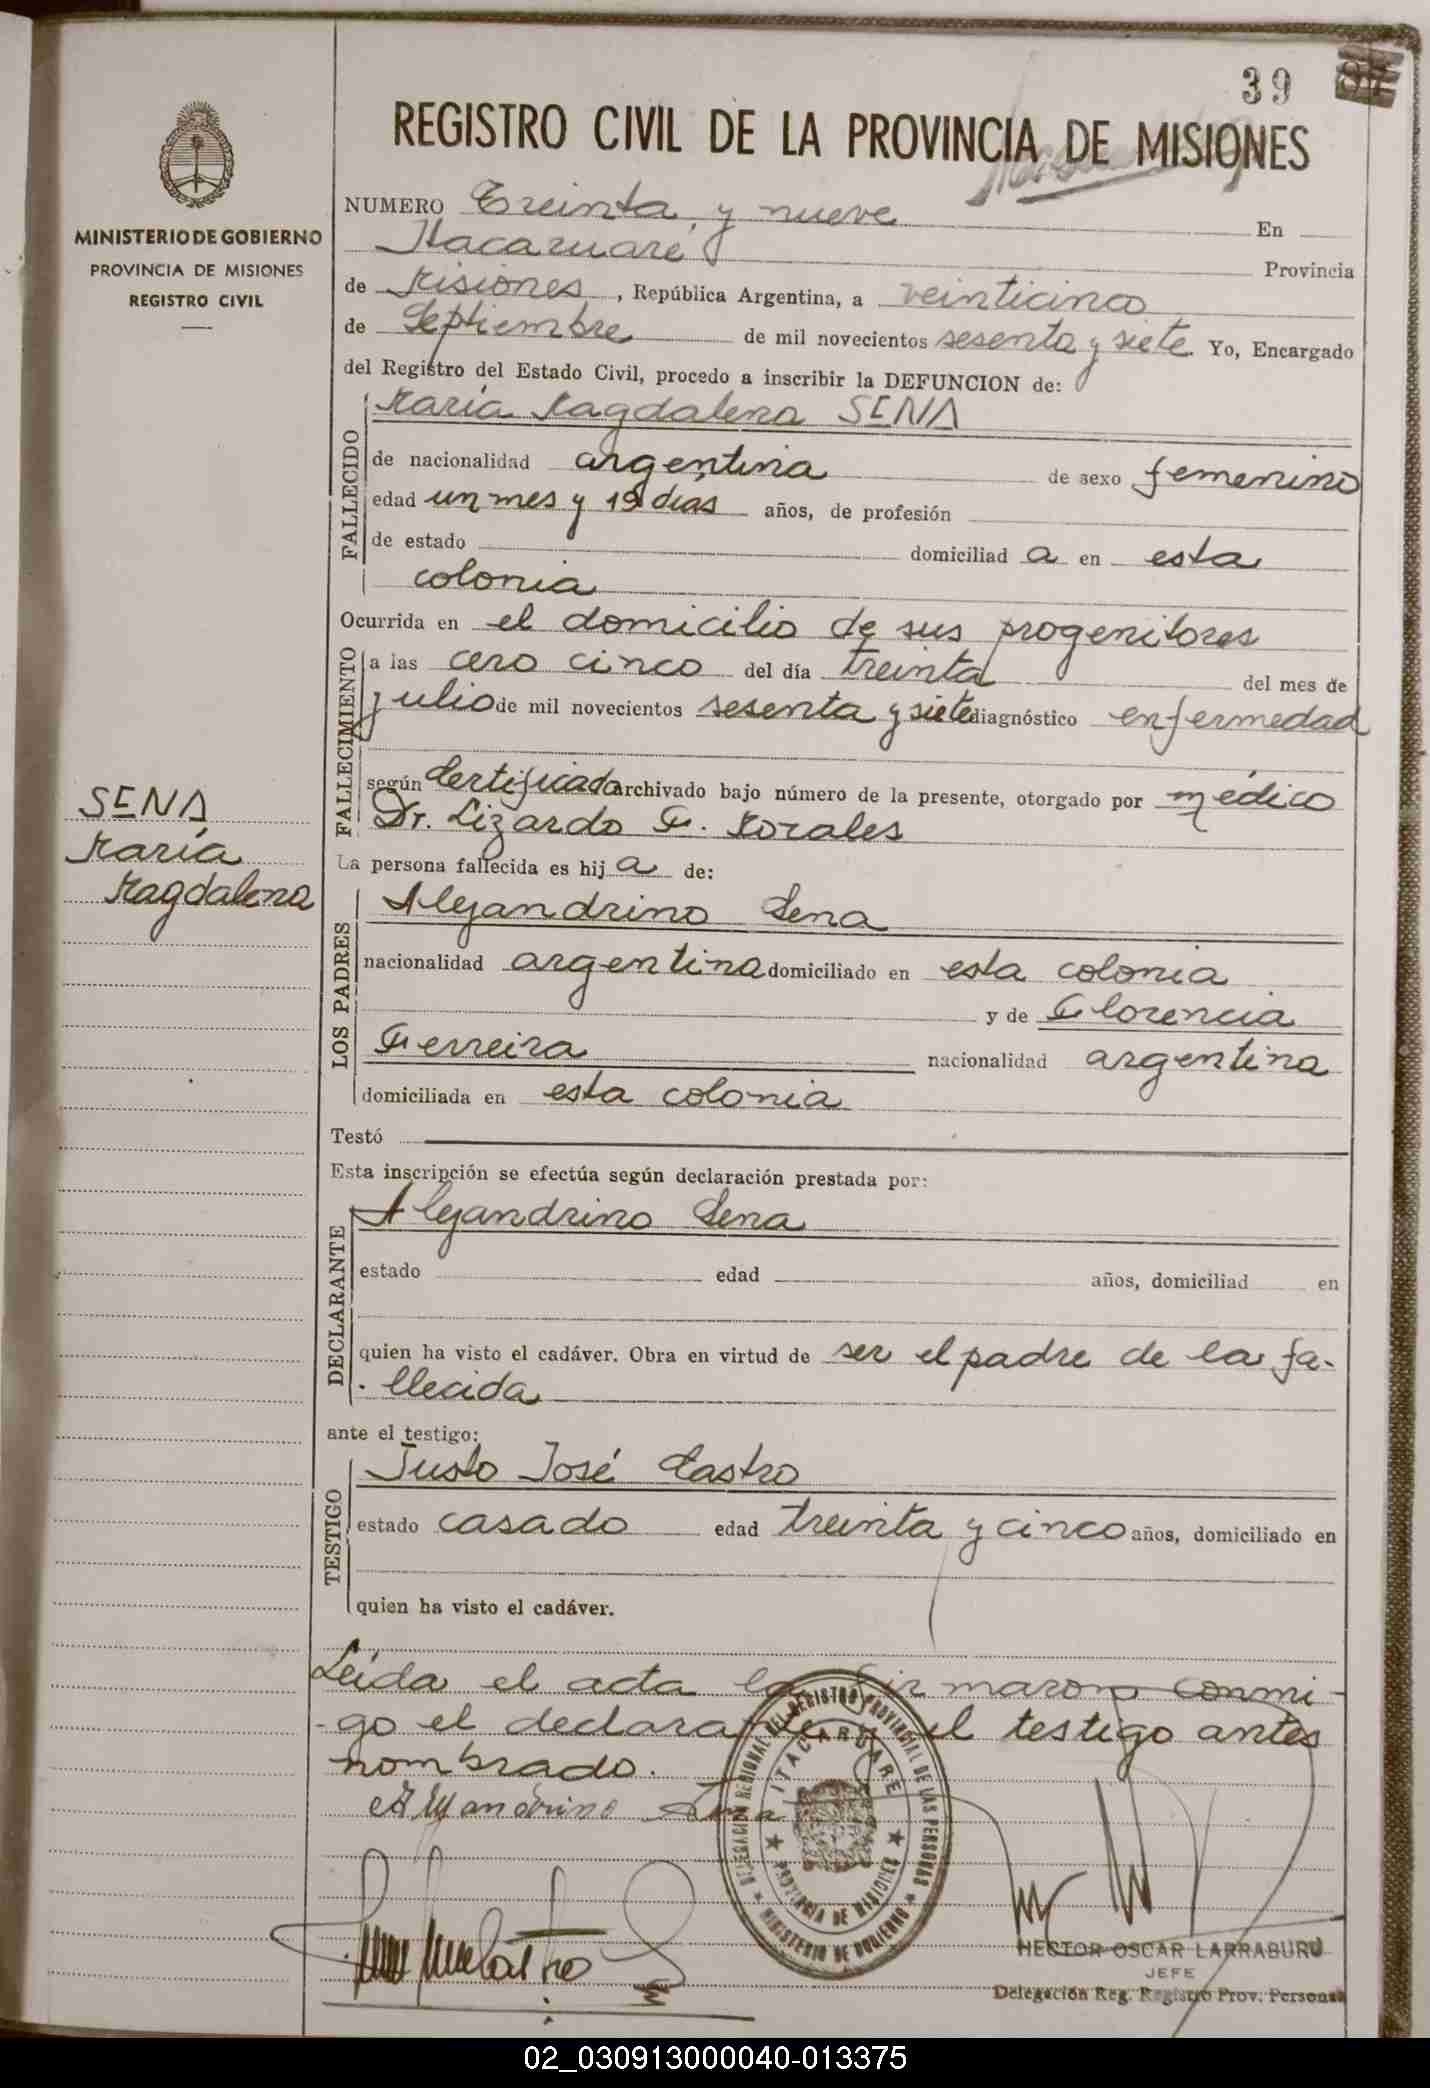 39
REGISTRO CIVIL DE LA PROVINCIA DE MISIONES
MINISTERIO DE GOBIERNO
PROVINCIA DE MISIONES
REGISTRO CIVIL
NUMERO Treinta y nueve En
Itacaruaré Provincia
de Misiones, República Argentina, a veinticinco
de Septiembre de mil novecientos sesenta y siete Yo, Encargado
del Registro del Estado Civil, procedo a inscribir la DEFUNCION de:
FALLECIDO
María Magdalena SENA
de nacionalidad argentina de sexo femenino
edad un mes y 19 dias años, de profesión
de estado domiciliad a en esta
colonia
Ocurrida en el domicilio de sus progenitores
FALLECIMIENTO
a las cero cinco del día treinta del mes de
julio de mil novecientos sesenta y siete diagnóstico enfermedad
según Certificado archivado bajo número de la presente, otorgado por médico
Dr. Lizardo F. Morales
SENA
María
Magdalena
La persona fallecida es hij a de:
LOS PADRES
Alejandrino Sena
nacionalidad argentina domiciliado en esta colonia
y de Florencia
Ferreira nacionalidad argentina
domiciliada en esta colonia
Testó
Esta inscripción se efectúa según declaración prestada por:
DECLARANTE
Alejandrino Sena
estado edad años, domiciliad en
quien ha visto el cadáver. Obra en virtud de ser el padre de la fa-
llecida
ante el testigo:
TESTIGO
Justo José Castro
estado casado edad treinta y cinco años, domiciliado en
quien ha visto el cadáver.
Leida el acta la firmaron conmi-
-go el declarante y el testigo antes
nombrado.
Alejandrino Sena
DELEGACION REGIONAL DEL REGISTRO PROVINCIAL DE LAS PERSONAS
ITACARUARE
PROVINCIA DE MISIONES
MINISTERIO DE GOBIERNO
HECTOR OSCAR LARRABURU
JEFE
Delegación Reg. Registro Prov. Personas
02_030913000040-013375